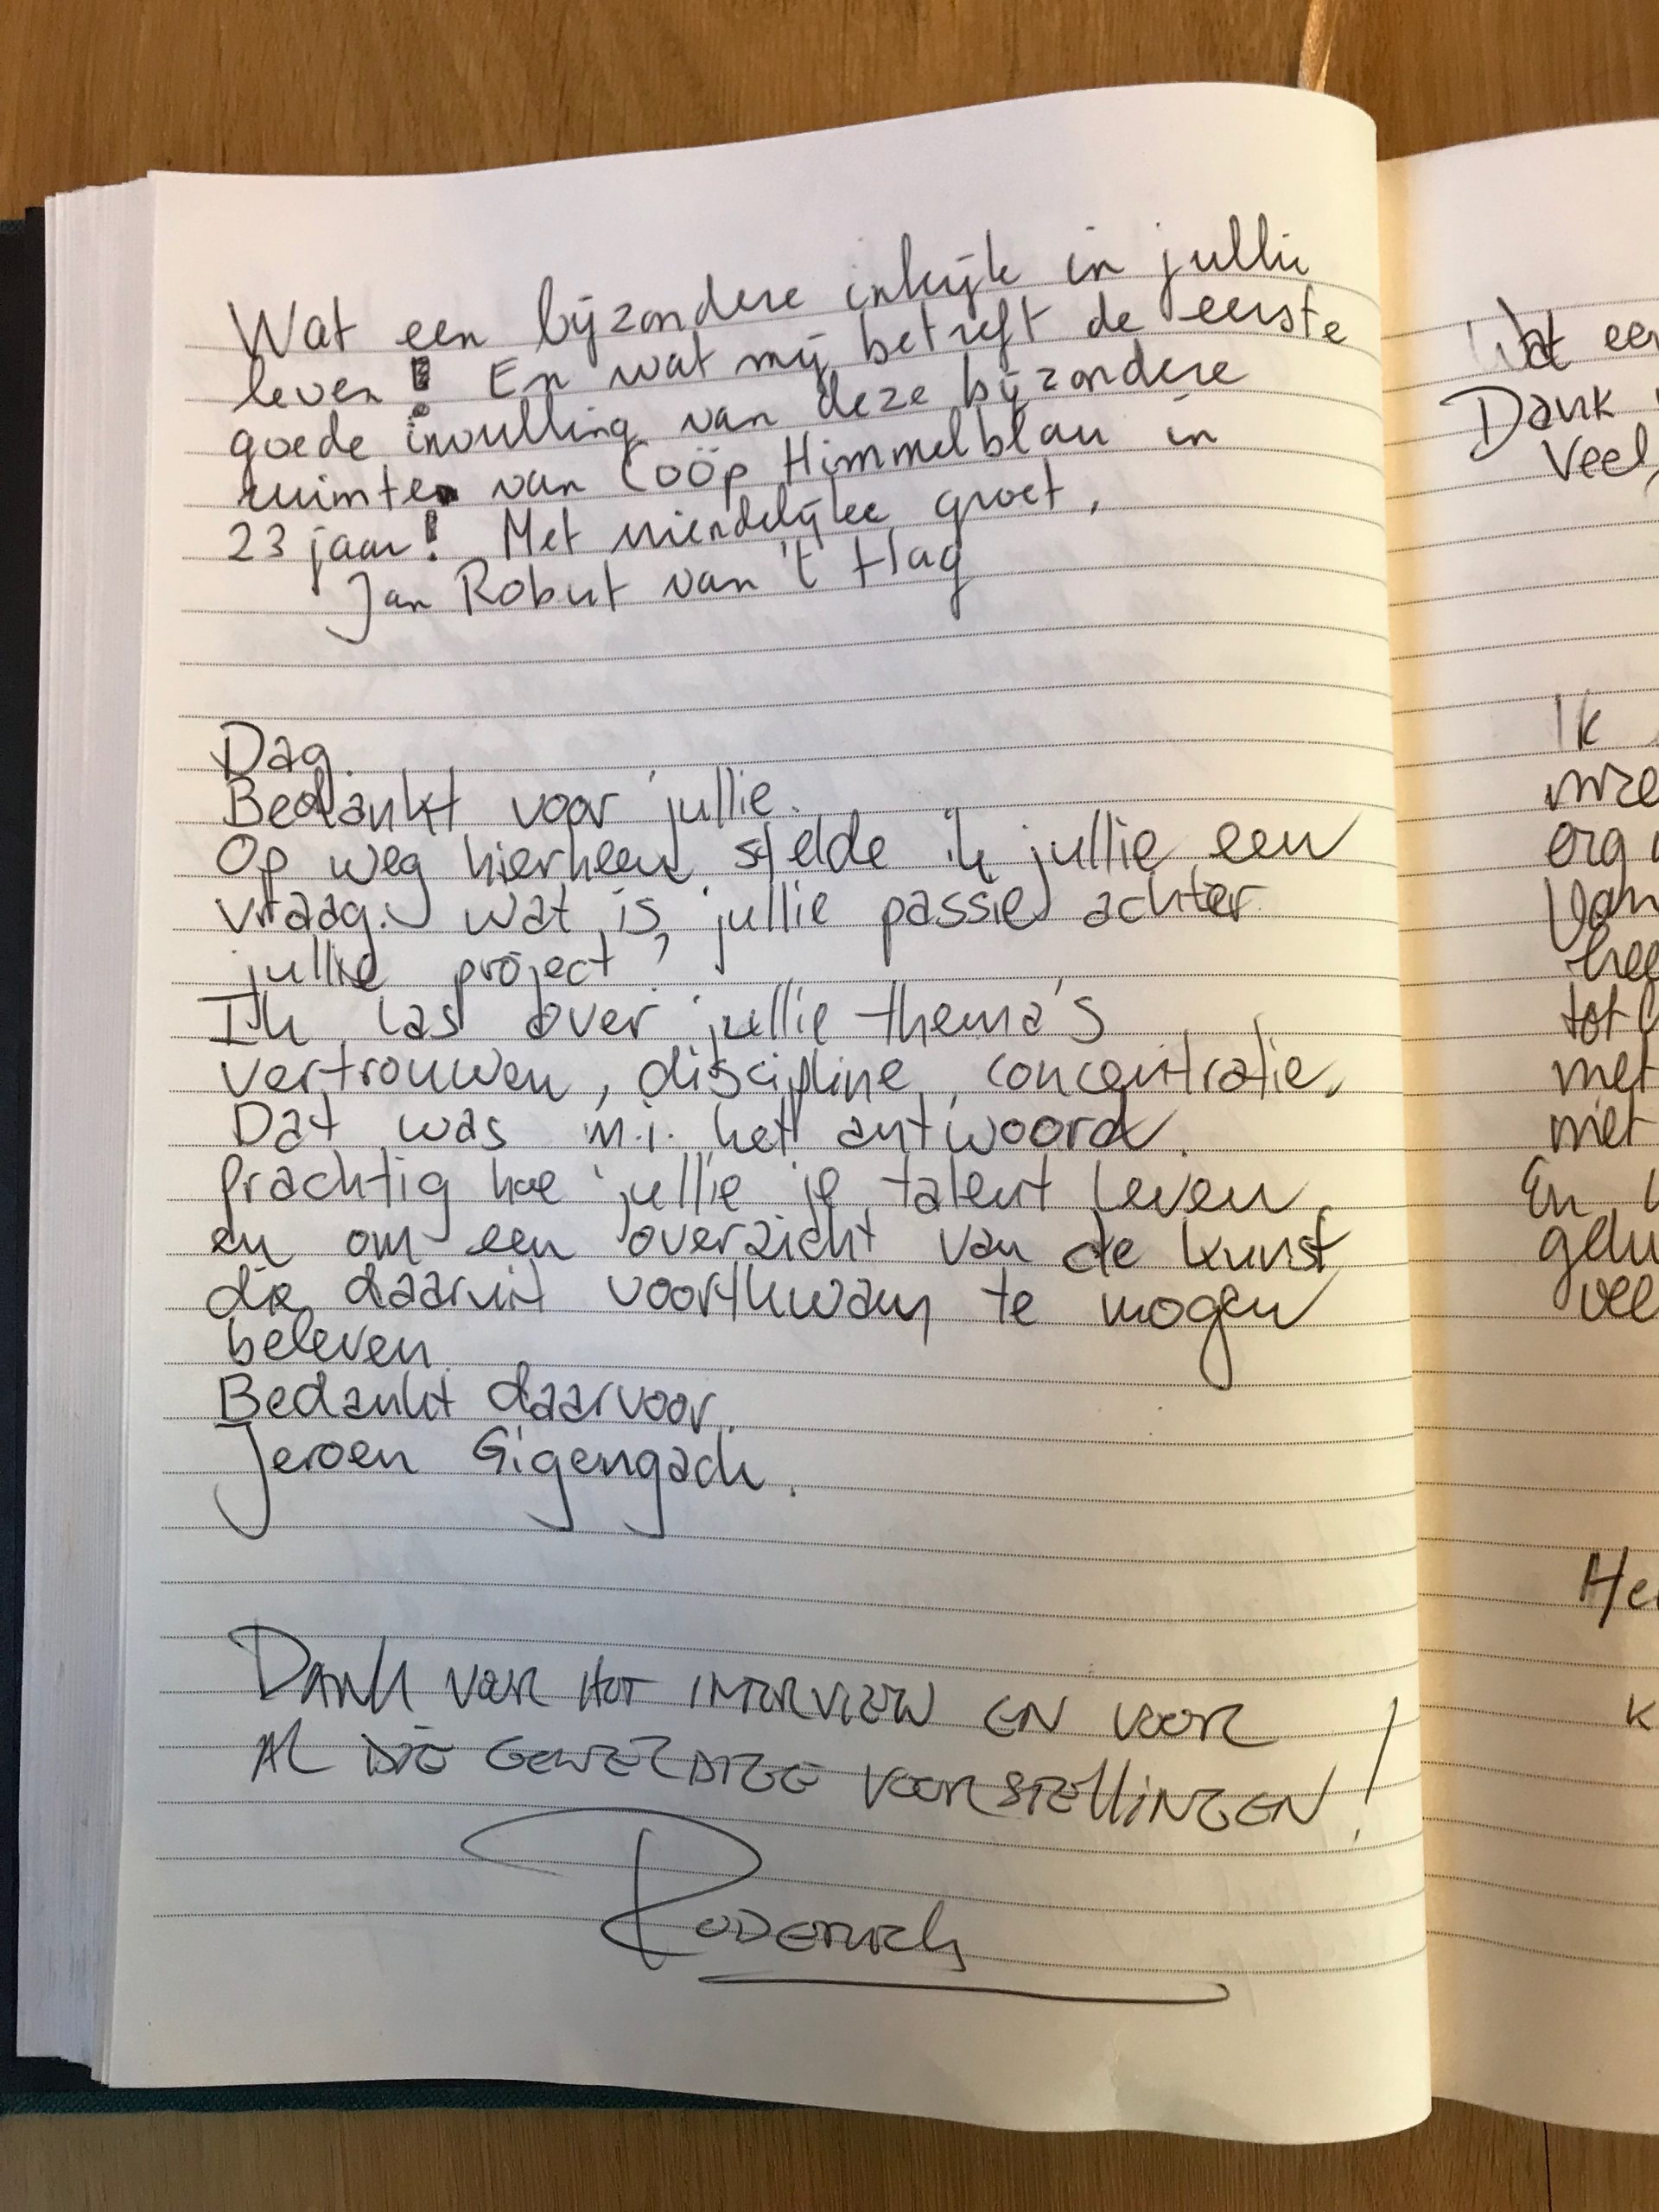 Wat een bijzondere inkijk in jullie
leven! En wat mij betreft de eerste
goede invulling van deze bijzondere
ruimte van Coöp Himmelblau in
23 jaar! Met vriendelijke groet,
Jan Robert van 't Hag
Dag.
Bedankt voor jullie.
Op weg hierheen stelde ik jullie een
vraag: Wat is jullie passie achter
jullie project?
Ik las over jullie thema's
vertrouwen, discipline, concentratie,
Dat was m.i. het antwoord.
Prachtig hoe jullie je talent leven
en om een overzicht van de kunst
die daaruit voortkwam te mogen
beleven.
Bedankt daarvoor.
Jeroen Gigengack.
DANK VOOR HET INTERVIEW EN VOOR
AL DIE GEWELDIGE VOORSTELLINGEN!
RODERICK
Wat
Dank
Veel
Ik
erg
tot
met
niet
En